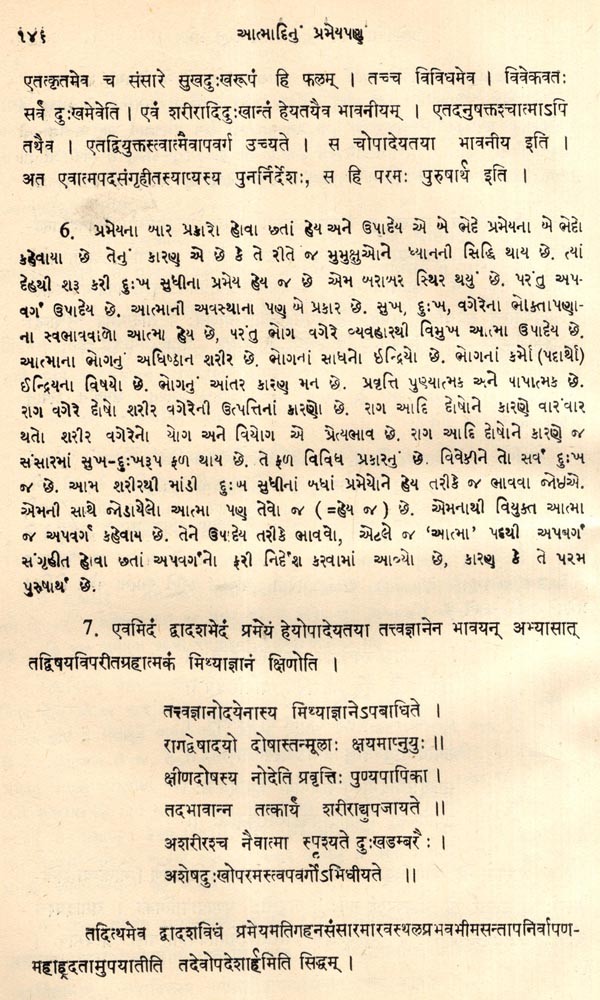 ૧૪૬ આત્માદિનું પ્રમેયપણું
एतत्कृतमेव च संसारे सुखदुःखरूपं हि फलम् । तच्च विविधमेव । विवेकवतः
सर्वं दुःखमेवेति । एवं शरीरादिदुःखान्तं हेयतयैव भावनीयम् । एतदनुषक्तश्चात्माऽपि
तथैव । एतद्वियुक्तस्त्वात्मैवापवर्ग उच्यते । स चोपादेयतया भावनीय इति ।
अत एवात्मपदसंगृहीतस्याप्यस्य पुनर्निर्देशः, स हि परमः पुरुषार्थ इति ।
6. પ્રમેયના બાર પ્રકારો હોવા છતાં હેય અને ઉપાદેય એ બે ભેદે પ્રમેયના બે ભેદો
કહેવાયા છે તેનું કારણ એ છે કે તે રીતે જ મુમુક્ષુઓને ધ્યાનની સિદ્ધિ થાય છે. ત્યાં
દેહથી શરૂ કરી દુઃખ સુધીના પ્રમેય હેય જ છે એમ બરાબર સ્થિર થયું છે. પરંતુ અપ-
વર્ગ ઉપાદેય છે. આત્માની અવસ્થાના પણ બે પ્રકાર છે. સુખ, દુઃખ, વગેરેના ભોક્તાપણા-
ના સ્વભાવવાળો આત્મા હેય છે, પરંતુ ભોગ વગેરે વ્યવહારથી વિમુખ આત્મા ઉપાદેય છે.
આત્માના ભોગનું અધિષ્ઠાન શરીર છે. ભોગનાં સાધનો ઈન્દ્રિયો છે. ભોગનાં કર્મો (પદાર્થો)
ઈન્દ્રિયના વિષયો છે. ભોગનું આંતર કારણ મન છે. પ્રવૃત્તિ પુણ્યાત્મક અને પાપાત્મક છે.
રાગ વગેરે દોષો શરીર વગેરેની ઉત્પત્તિનાં કારણો છે. રાગ આદિ દોષોને કારણે વારંવાર
થતો શરીર વગેરેનો યોગ અને વિયોગ એ પ્રેત્યભાવ છે. રાગ આદિ દોષોને કારણે જ
સંસારમાં સુખ-દુઃખરૂપ ફળ થાય છે. તે ફળ વિવિધ પ્રકારનું છે. વિવેકીને તો સર્વ દુઃખ
જ છે. આમ શરીરથી માંડી દુઃખ સુધીનાં બધાં પ્રમેયોને હેય તરીકે જ ભાવવા જોઈએ.
એમની સાથે જોડાયેલો આત્મા પણ તેવો જ (=હેય જ) છે. એમનાથી વિયુક્ત આત્મા
જ અપવર્ગ કહેવાય છે. તેને ઉપાદેય તરીકે ભાવવો, એટલે જ ‘આત્મા’ પદથી અપવર્ગ
સંગૃહીત હોવા છતાં અપવર્ગનો ફરી નિર્દેશ કરવામાં આવ્યો છે, કારણ કે તે પરમ
પુરુષાર્થ છે.
7. एवमिदं द्वादशभेदं प्रमेयं हेयोपादेयतया तत्त्वज्ञानेन भावयन् अभ्यासात्
तद्विषयविपरीतग्रहात्मकं मिथ्याज्ञानं क्षिणोति ।
तत्त्वज्ञानोदयेनास्य मिथ्याज्ञानेऽपबाधिते ।
रागद्वेषादयो दोषास्तन्मूलाः क्षयमाप्नुयुः ॥
क्षीणदोषस्य नोदेति प्रवृत्तिः पुण्यपापिका ।
तदभावान्न तत्कार्यं शरीराद्युपजायते ॥
अशरीरश्च नैवात्मा स्पृश्यते दुःखडम्बरैः ।
अशेषदुःखोपरमस्त्वपवर्गोऽभिधीयते ॥
तदित्थमेव द्वादशविधं प्रमेयमतिगहनसंसारमारवस्थलप्रभवभीमसन्तापनिर्वापण-
महाह्रदतामुपयातीति तदेवोपदेशार्हमिति सिद्धम् ।